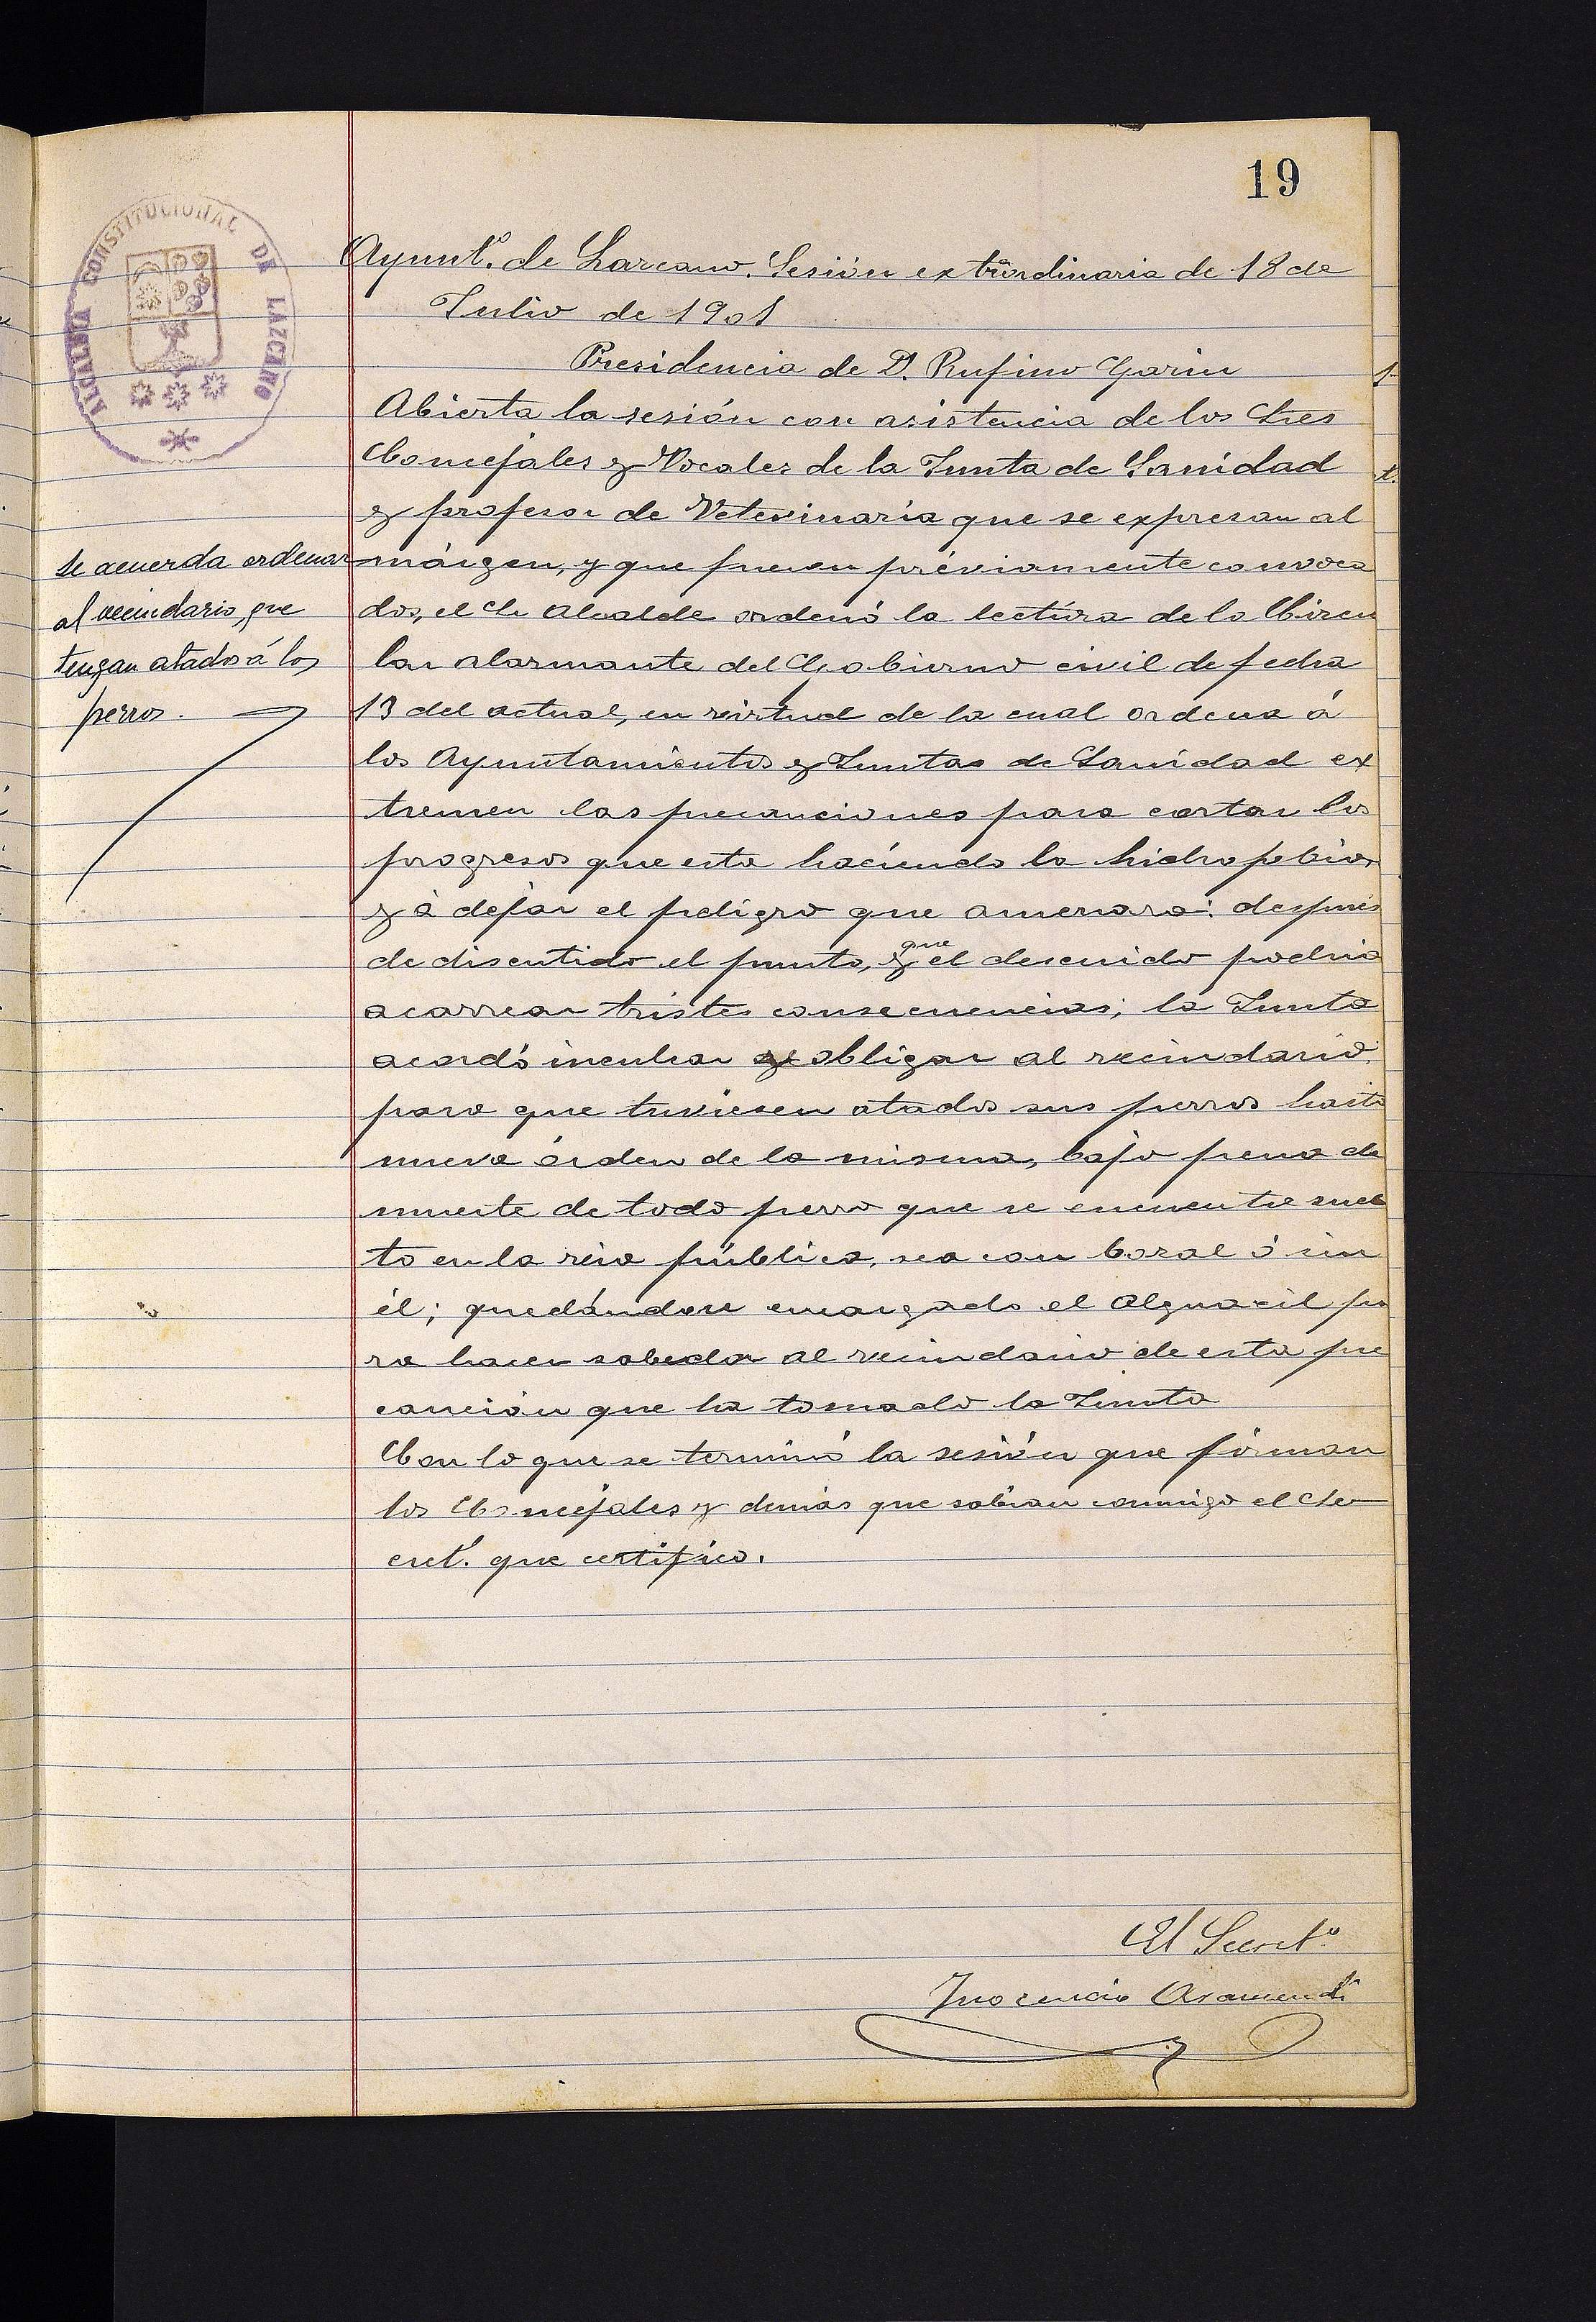 19
ALCALDIA CONSTITUCIONAL DE LAZCANO
Ayuntº. de Lazcano. Sesión extraordinaria de 18 de
Julio de 1901
Presidencia de D. Rufino Garin
Abierta la sesión con asistencia de los Sres
Concejales y Vocales de la Junta de Sanidad
y profesor de Veterinaria que se expresan al
márgen, y que fueron préviamente convoca
dos, el Sr Alcalde ordenó la lectura de la Circu
lar alarmante del Gobierno civil de fecha
13 del actual, en virtud de la cual ordena á
los Ayuntamientos y Juntas de Sanidad ex
tremen las precauciones para cortar los
progresos que esta haciendo la hidrofobia
y á dejar el peligro que amenaza: después
de discutido el punto, y que el descuido podria
acarrear tristes consecuencias; la Junta
acordó inculcar y obligar al vecindario,
para que tuviesen atados sus perros hasta
nueva órden de la misma, bajo pena de
muerte de todo perro que se encuentre suel
to en la via pública, sea con bozal ó sin
él; quedándose encargado el Alguacil pa
ra hacer sabedor al vecindario de esta pre
caución que ha tomado la Junta
Con lo que se terminó la sesión que firman
los Concejales y demás que sabian conmigo el Se
cretº. que certifico.
Se acuerda ordenar
al vecindario, que
tengan atados á los
perros.
El Secretº
Inocencio Asamendi